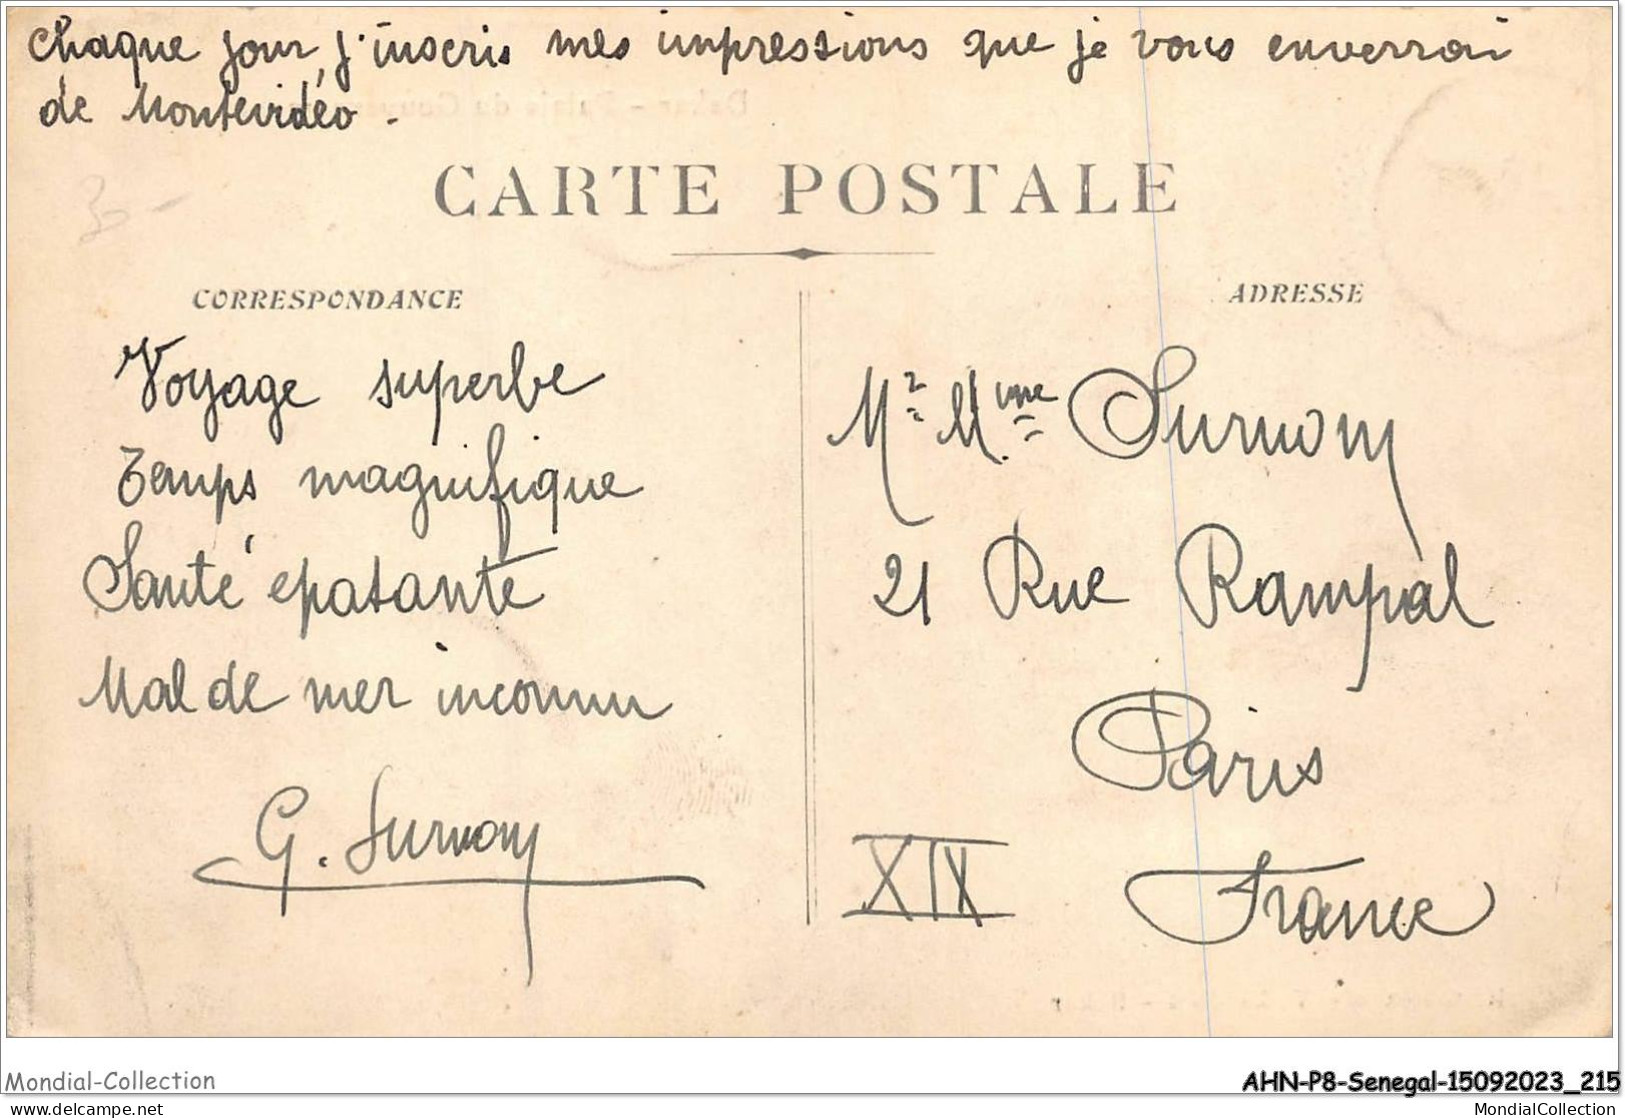 Chaque jour, j'inscris mes impressions que je vous enverrai
de Montevidéo.
30-
CARTE POSTALE
CORRESPONDANCE
ADRESSE
Voyage superbe
Temps magnifique
Santé épatante
Mal de mer inconnu
G. Surnom
Mr. Mme Surnom
21 Rue Rampal
Paris
XIX
France
Mondial-Collection
AHN-P8-Senegal-15092023_215
delcampe.net
MondialCollection